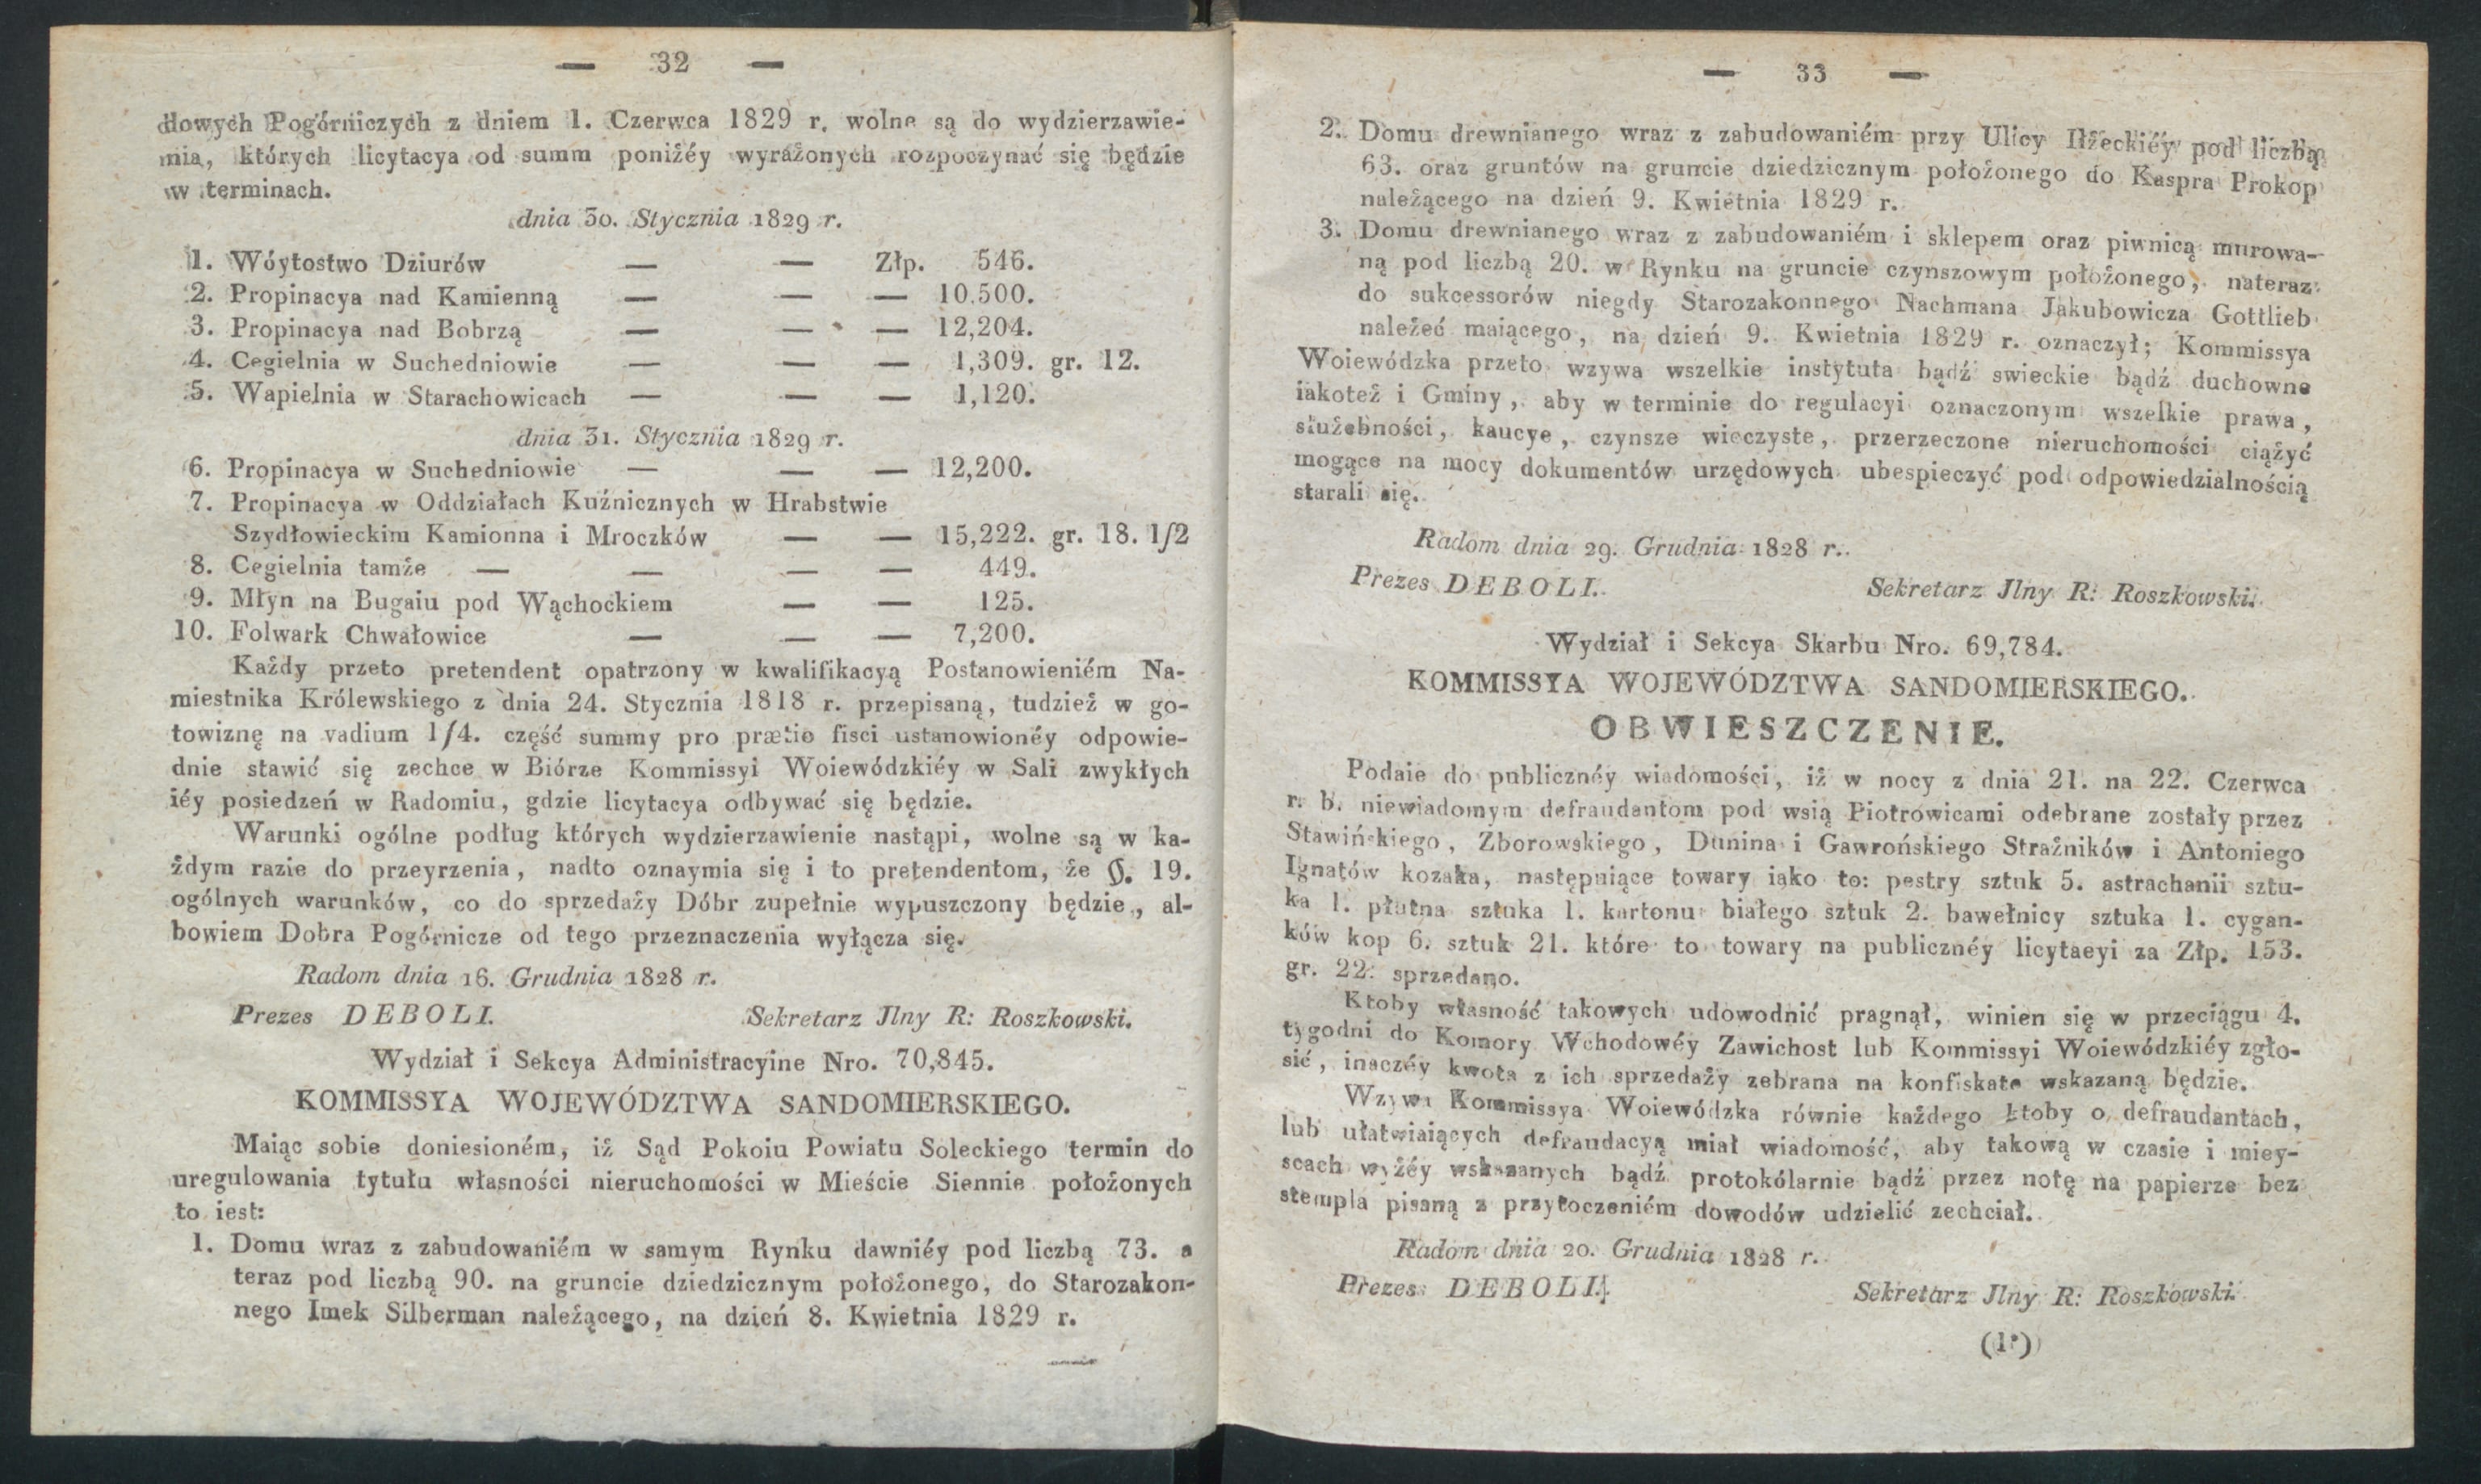 — 32 —
dowych Pogórniczych z dniem 1. Czerwca 1829 r. wolne są do wydzierzawie-
nia, których licytacya od summ poniżéy wyrażonych rozpoczynać się będzie
w terminach.
dnia 30. Stycznia 1829 r.
1. Wóytostwo Dziurów — — Złp. 546.
2. Propinacya nad Kamienną — — — 10.500.
3. Propinacya nad Bobrzą — — — 12,204.
4. Cegielnia w Suchedniowie — — — 1,309. gr. 12.
5. Wapielnia w Starachowicach — — — 1,120.
dnia 31. Stycznia 1829 r.
6. Propinacya w Suchedniowie — — — 12,200.
7. Propinacya w Oddziałach Kuźnicznych w Hrabstwie
Szydłowieckim Kamionna i Mroczków — — 15,222. gr. 18. 1/2
8. Cegielnia tamże — — — — 449.
9. Młyn na Bugaiu pod Wąchockiem — — 125.
10. Folwark Chwałowice — — — 7,200.
Każdy przeto pretendent opatrzony w kwalifikacyą Postanowieniém Na-
miestnika Królewskiego z dnia 24. Stycznia 1818 r. przepisaną, tudzież w go-
towiznę na vadium 1/4. część summy pro prætio fisci ustanowionéy odpowie-
dnie stawić się zechce w Biórze Kommissyi Woiewódzkiéy w Sali zwykłych
iéy posiedzeń w Radomiu, gdzie licytacya odbywać się będzie.
Warunki ogólne podług których wydzierzawienie nastąpi, wolne są w ka-
żdym razie do przeyrzenia, nadto oznaymia się i to pretendentom, że §. 19.
ogólnych warunków, co do sprzedaży Dóbr zupełnie wypuszczony będzie, al-
bowiem Dobra Pogórnicze od tego przeznaczenia wyłącza się.
Radom dnia 16. Grudnia 1828 r.
Prezes DEBOLI. Sekretarz Jlny R: Roszkowski.
Wydział i Sekcya Administracyine Nro. 70,845.
KOMMISSYA WOJEWÓDZTWA SANDOMIERSKIEGO.
Maiąc sobie doniesioném, iż Sąd Pokoiu Powiatu Soleckiego termin do
uregulowania tytułu własności nieruchomości w Mieście Siennie położonych
to iest:
1. Domu wraz z zabudowaniém w samym Rynku dawniéy pod liczbą 73. a
teraz pod liczbą 90. na gruncie dziedzicznym położonego, do Starozakon-
nego Imek Silberman należącego, na dzień 8. Kwietnia 1829 r.
— 33 —
2. Domu drewnianego wraz z zabudowaniém przy Ulicy Iłżeckiéy pod liczbą
63. oraz gruntów na gruncie dziedzicznym położonego do Kaspra Prokop
należącego na dzień 9. Kwietnia 1829 r.
3. Domu drewnianego wraz z zabudowaniém i sklepem oraz piwnicą murowa-
ną pod liczbą 20. w Rynku na gruncie czynszowym położonego, nateraz
do sukcessorów niegdy Starozakonnego Nachmana Jakubowicza Gottlieb
należeć maiącego, na dzień 9. Kwietnia 1829 r. oznaczył; Kommissya
Woiewódzka przeto wzywa wszelkie instytuta bądź swieckie bądź duchowne
iakoteż i Gminy, aby w terminie do regulacyi oznaczonym wszelkie prawa,
służebności, kaucye, czynsze wieczyste, przerzeczone nieruchomości ciążyć
mogące na mocy dokumentów urzędowych ubespieczyć pod odpowiedzialnością
starali się.
Radom dnia 29. Grudnia 1828 r.
Prezes DEBOLI. Sekretarz Jlny R: Roszkowski.
Wydział i Sekcya Skarbu Nro. 69,784.
KOMMISSYA WOJEWÓDZTWA SANDOMIERSKIEGO.
OBWIESZCZENIE.
Podaie do publicznéy wiadomości, iż w nocy z dnia 21. na 22. Czerwca
r. b. niewiadomym defraudantom pod wsią Piotrowicami odebrane zostały przez
Stawińskiego, Zborowskiego, Dunina i Gawrońskiego Strażników i Antoniego
Ignatów kozaka, następuiące towary iako to: pestry sztuk 5. astrachanii sztu-
ka 1. płutna sztuka 1. kartonu białego sztuk 2. bawełnicy sztuka 1. cygan-
ków kop 6. sztuk 21. które to towary na publicznéy licytacyi za Złp. 153.
gr. 22. sprzedano.
Ktoby własność takowych udowodnić pragnął, winien się w przeciągu 4.
tygodni do Komory Wchodowéy Zawichost lub Kommissyi Woiewódzkiéy zgło-
sić, inaczéy kwota z ich sprzedaży zebrana na konfiskate wskazaną będzie.
Wzywa Kommissya Woiewódzka równie każdego ktoby o defraudantach,
lub ułatwiaiących defraudacyą miał wiadomość, aby takową w czasie i miey-
scach wyżéy wskazanych bądź protokólarnie bądź przez notę na papierze bez
stempla pisaną z przytoczeniém dowodów udzielić zechciał.
Radom dnia 20. Grudnia 1828 r.
Prezes DEBOLI. Sekretarz Jlny R: Roszkowski.
(1*)